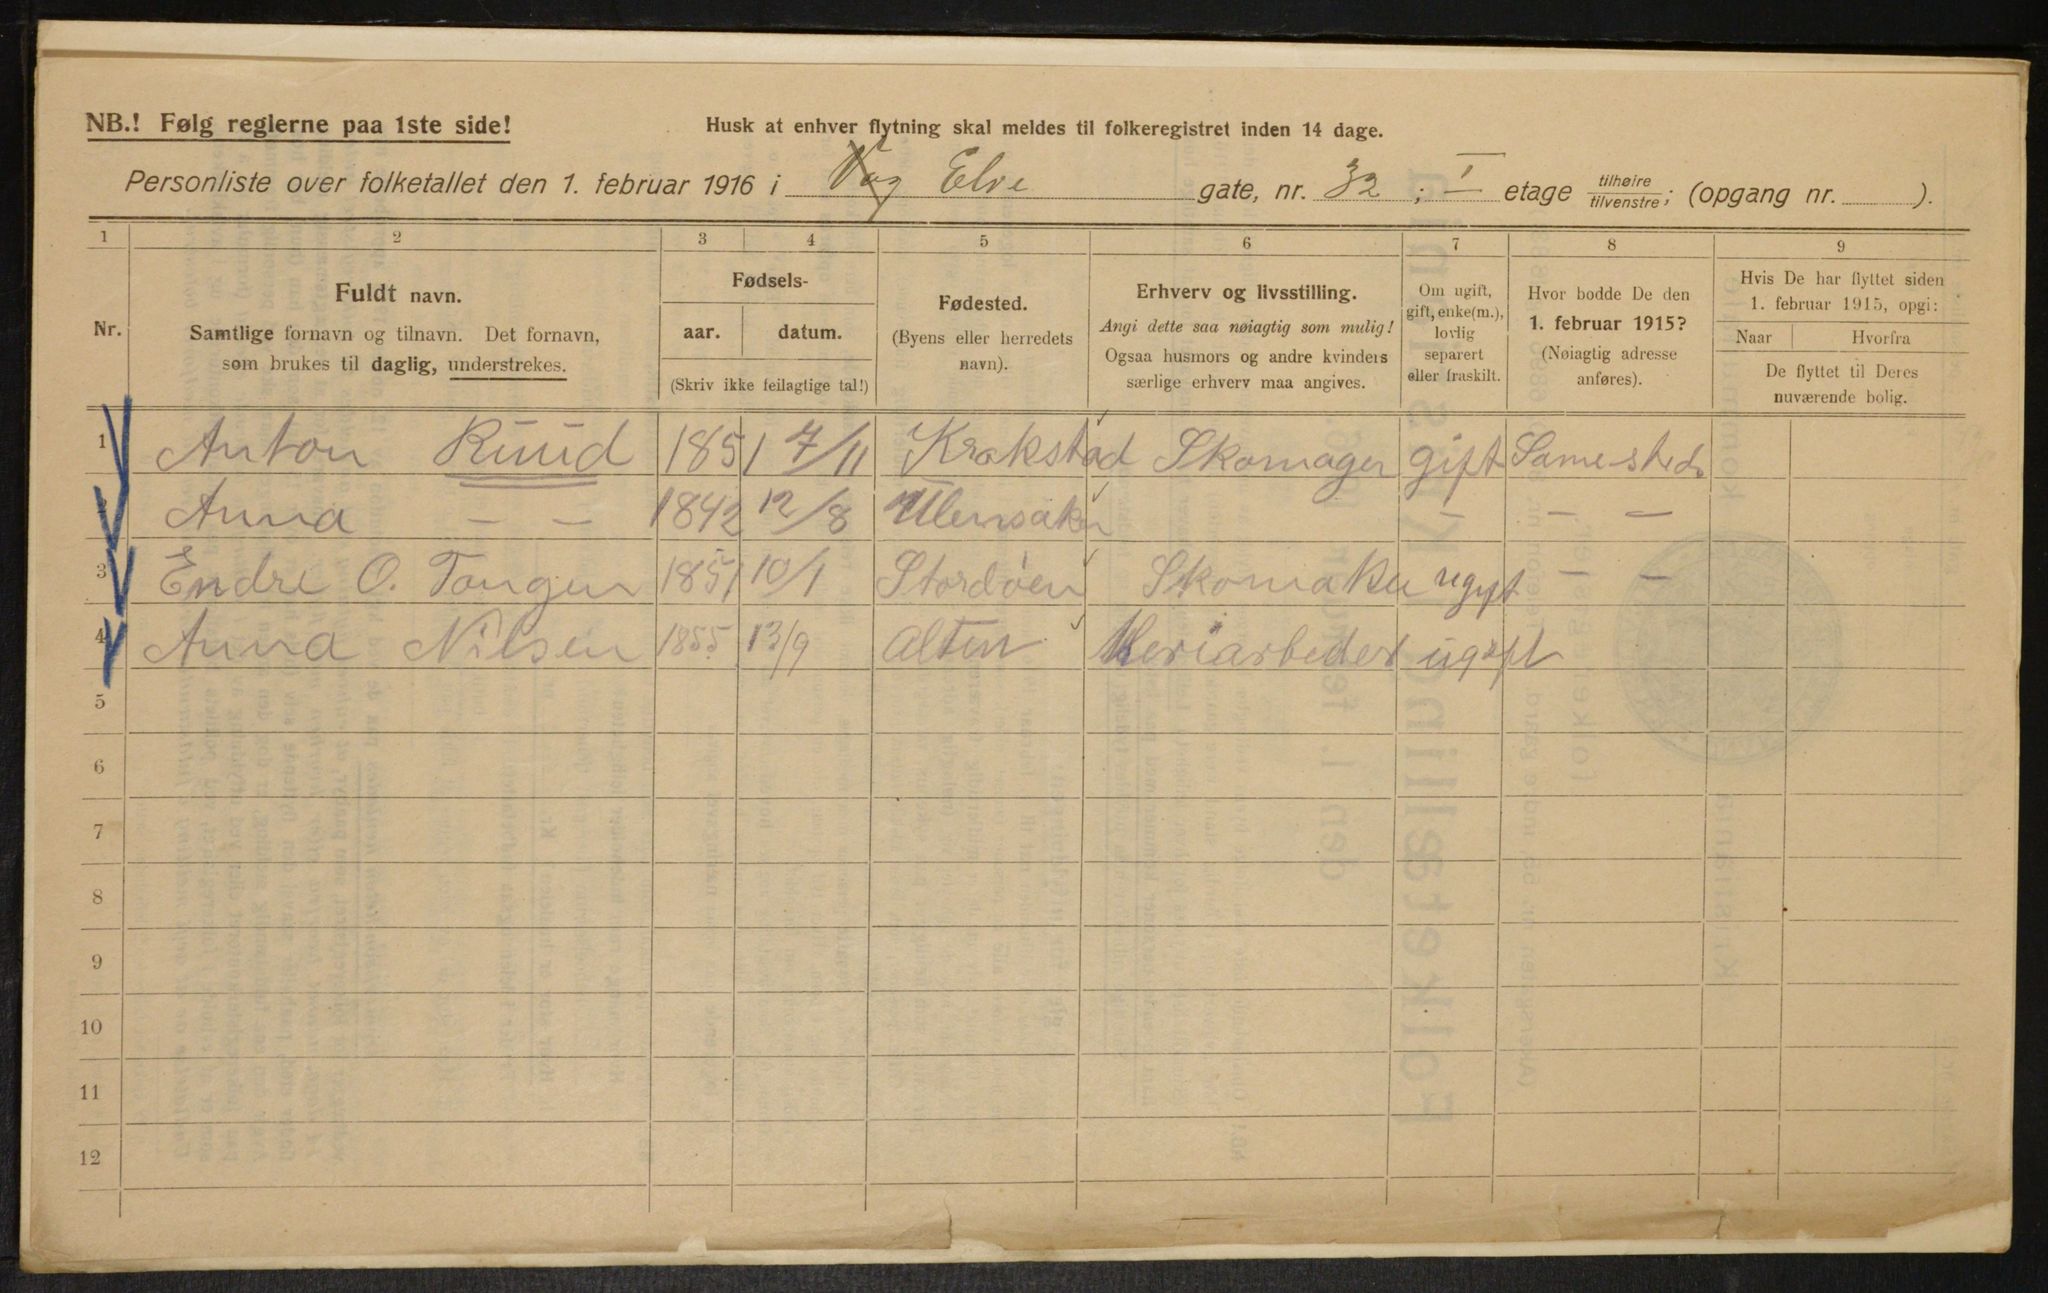 NB.! Følg reglerne paa 1ste side!
Husk at enhver flytning skal meldes til folkeregistret inden 14 dage.
Personliste over folketallet den 1. februar 1916 i Elve gate, nr. 32 ; I etage tilhøire/tilvenstre; (opgang nr. ).
1 2 3 4 5 6 7 8 9
Nr.
Fuldt navn.
Samtlige fornavn og tilnavn. Det fornavn,
som brukes til daglig, understrekes.
Fødsels-
aar. datum.
(Skriv ikke feilagtige tal!)
Fødested.
(Byens eller herredets
navn).
Erhverv og livsstilling.
Angi dette saa nøiagtig som mulig!
Ogsaa husmors og andre kvinders
særlige erhverv maa angives.
Om ugift,
gift, enke(m.),
lovlig
separert
eller fraskilt.
Hvor bodde De den
1. februar 1915?
(Nøiagtig adresse
anføres).
Hvis De har flyttet siden
1. februar 1915, opgi:
Naar Hvorfra
De flyttet til Deres
nuværende bolig.
1 Anton Ruud 1851 7/11 Krakstad Skomager gift Samesteds
2 Anna — — 1842 12/8 Ullensaker — — —
3 Endre O. Tangen 1851 10/1 Stordøen Skomaker ugift — —
4 Anna Nilsen 1855 13/9 Alten ugift
5
6
7
8
9
10
11
12